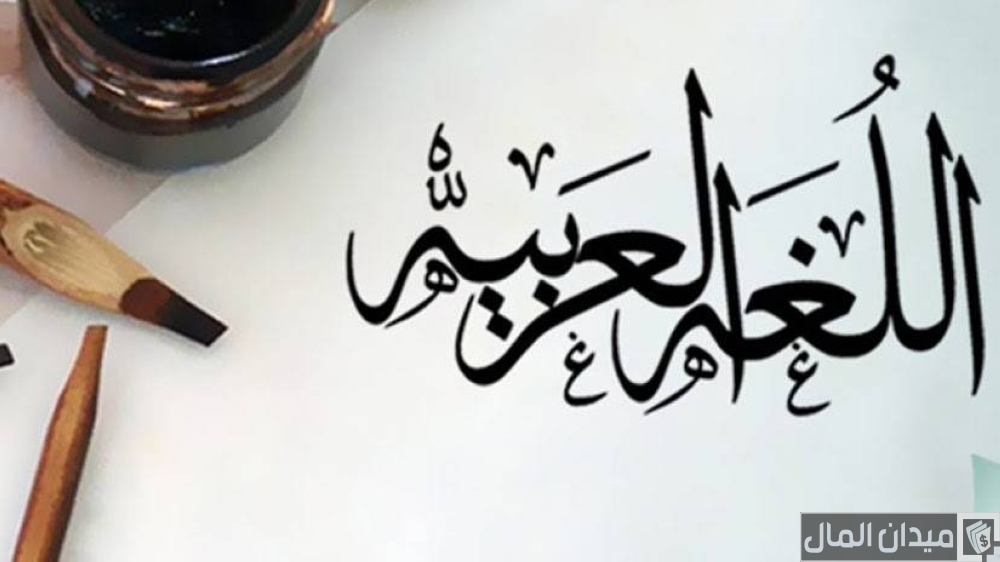 اللُغَه العَربيّه
ميدان المال